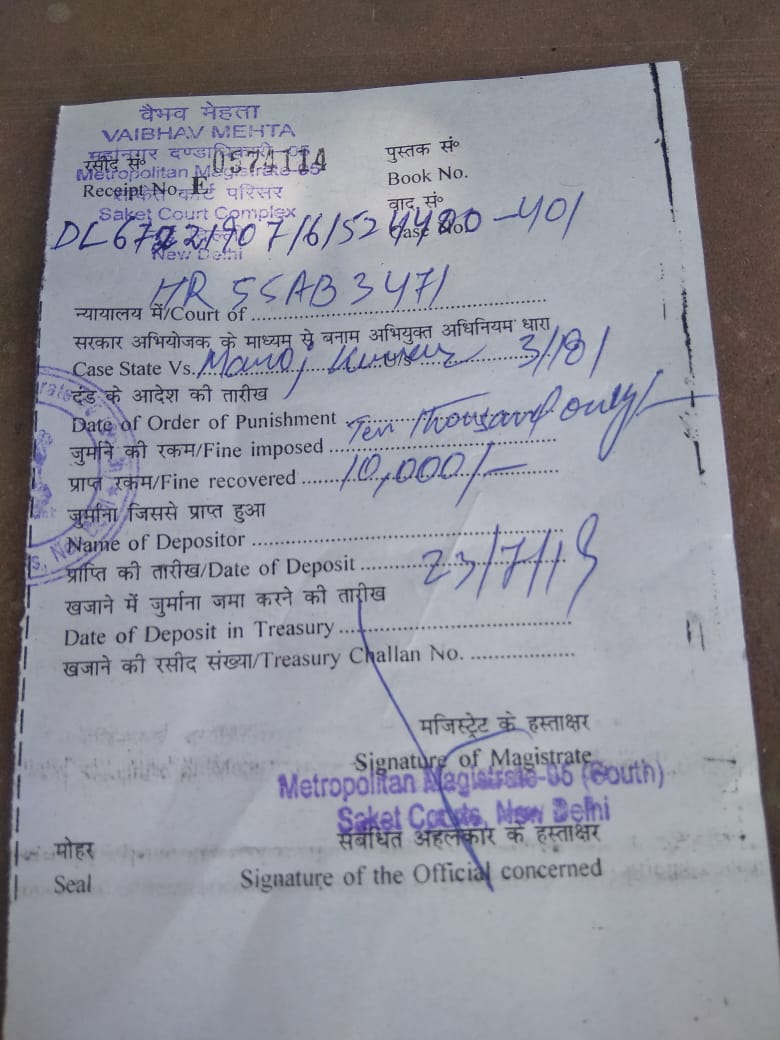 वैभव मेहता
VAIBHAV MEHTA
महानगर दण्डाधिकारी-05
रसीद सं॰ 0574114
पुस्तक सं॰
Metropolitan Magistrate-05
Receipt No. E
Book No.
साकेत कोर्ट परिसर
वाद सं॰
Saket Court Complex
Case No.
New Delhi
HR 55AB 3471
न्यायालय में/Court of
सरकार अभियोजक के माध्यम से बनाम अभियुक्त अधिनियम धारा
Case State Vs. Manoj Kumar U/s 3/181
दंड के आदेश की तारीख
Date of Order of Punishment
जुर्माने की रकम/Fine imposed Ten Thousand only/-
प्राप्त रकम/Fine recovered 10,000/-
जुर्माना जिससे प्राप्त हुआ
Name of Depositor
प्राप्ति की तारीख/Date of Deposit 23/7/19
खजाने में जुर्माना जमा करने की तारीख
Date of Deposit in Treasury
खजाने की रसीद संख्या/Treasury Challan No.
मजिस्ट्रेट के हस्ताक्षर
Signature of Magistrate
Metropolitan Magistrate-05 (South)
Saket Courts, New Delhi
मोहर
संबंधित अहलकार के हस्ताक्षर
Seal
Signature of the Official concerned